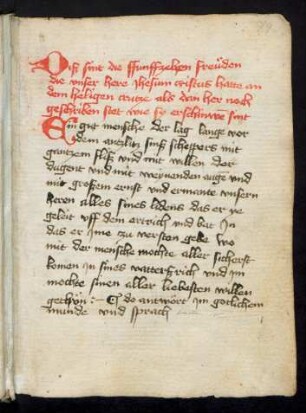 Diß sint die ffunffzehen freüden
die vnser here Jhesum cristus hatte an
dem heligen crütze als dan her noch
geschriben stet wie sy erschinnē sint
Ein gut mensche der lag lange vor
dem anczlitz sinß scheppers mit
gantzem fliß vnd mit willen der
dugent vnd mit weynenden auge vnd
mit großem ernst vnd ermante vnsern
heren alles sines lidens das er ye
geleit vff dem ertrich vnd bat In
das er ime zu versten gebe wo
mit der mensche mochte aller sicherst
komen in sines vatterß rich vnd im
möchte sinen aller liebesten willen
gethün :~ de antwört im götlichem
munde vnd sprach